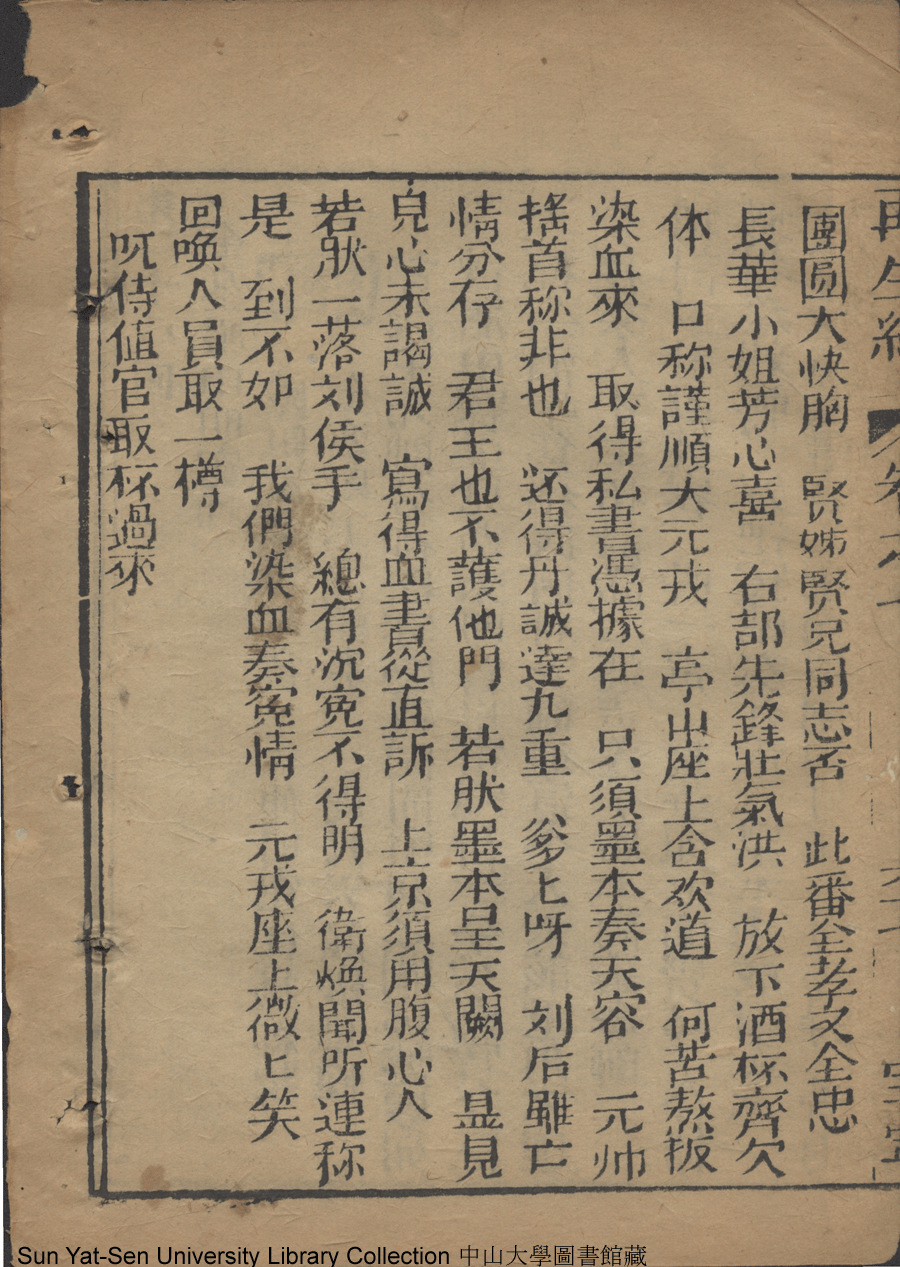 再生緣 卷之十
團圓大快胸 賢姊賢兄同志否 此番全孝又全忠
長華小姐芳心喜 右部先鋒壯氣洪 放下酒杯齊欠
体 口称謹順大元戎 亭山座上含欢道 何苦熬扳
染血來 取得私書憑據在 只須墨本奏天容 元帅
摇首称非也 还得丹誠達九重 爹匕呀 刘后雖亡
情分存 君王也不護他門 若肰墨本呈天闕 显見
皃心未謁誠 寫得血書從直訴 上京須用腹心人
若肰一落刘侯手 總有沉寃不得明 衛煥聞所連称
是 到不如 我們染血奏寃情 元戎座上微匕笑
回喚人員取一樽
吮侍值官取杯過來
Sun Yat-Sen University Library Collection 中山大學圖書館藏